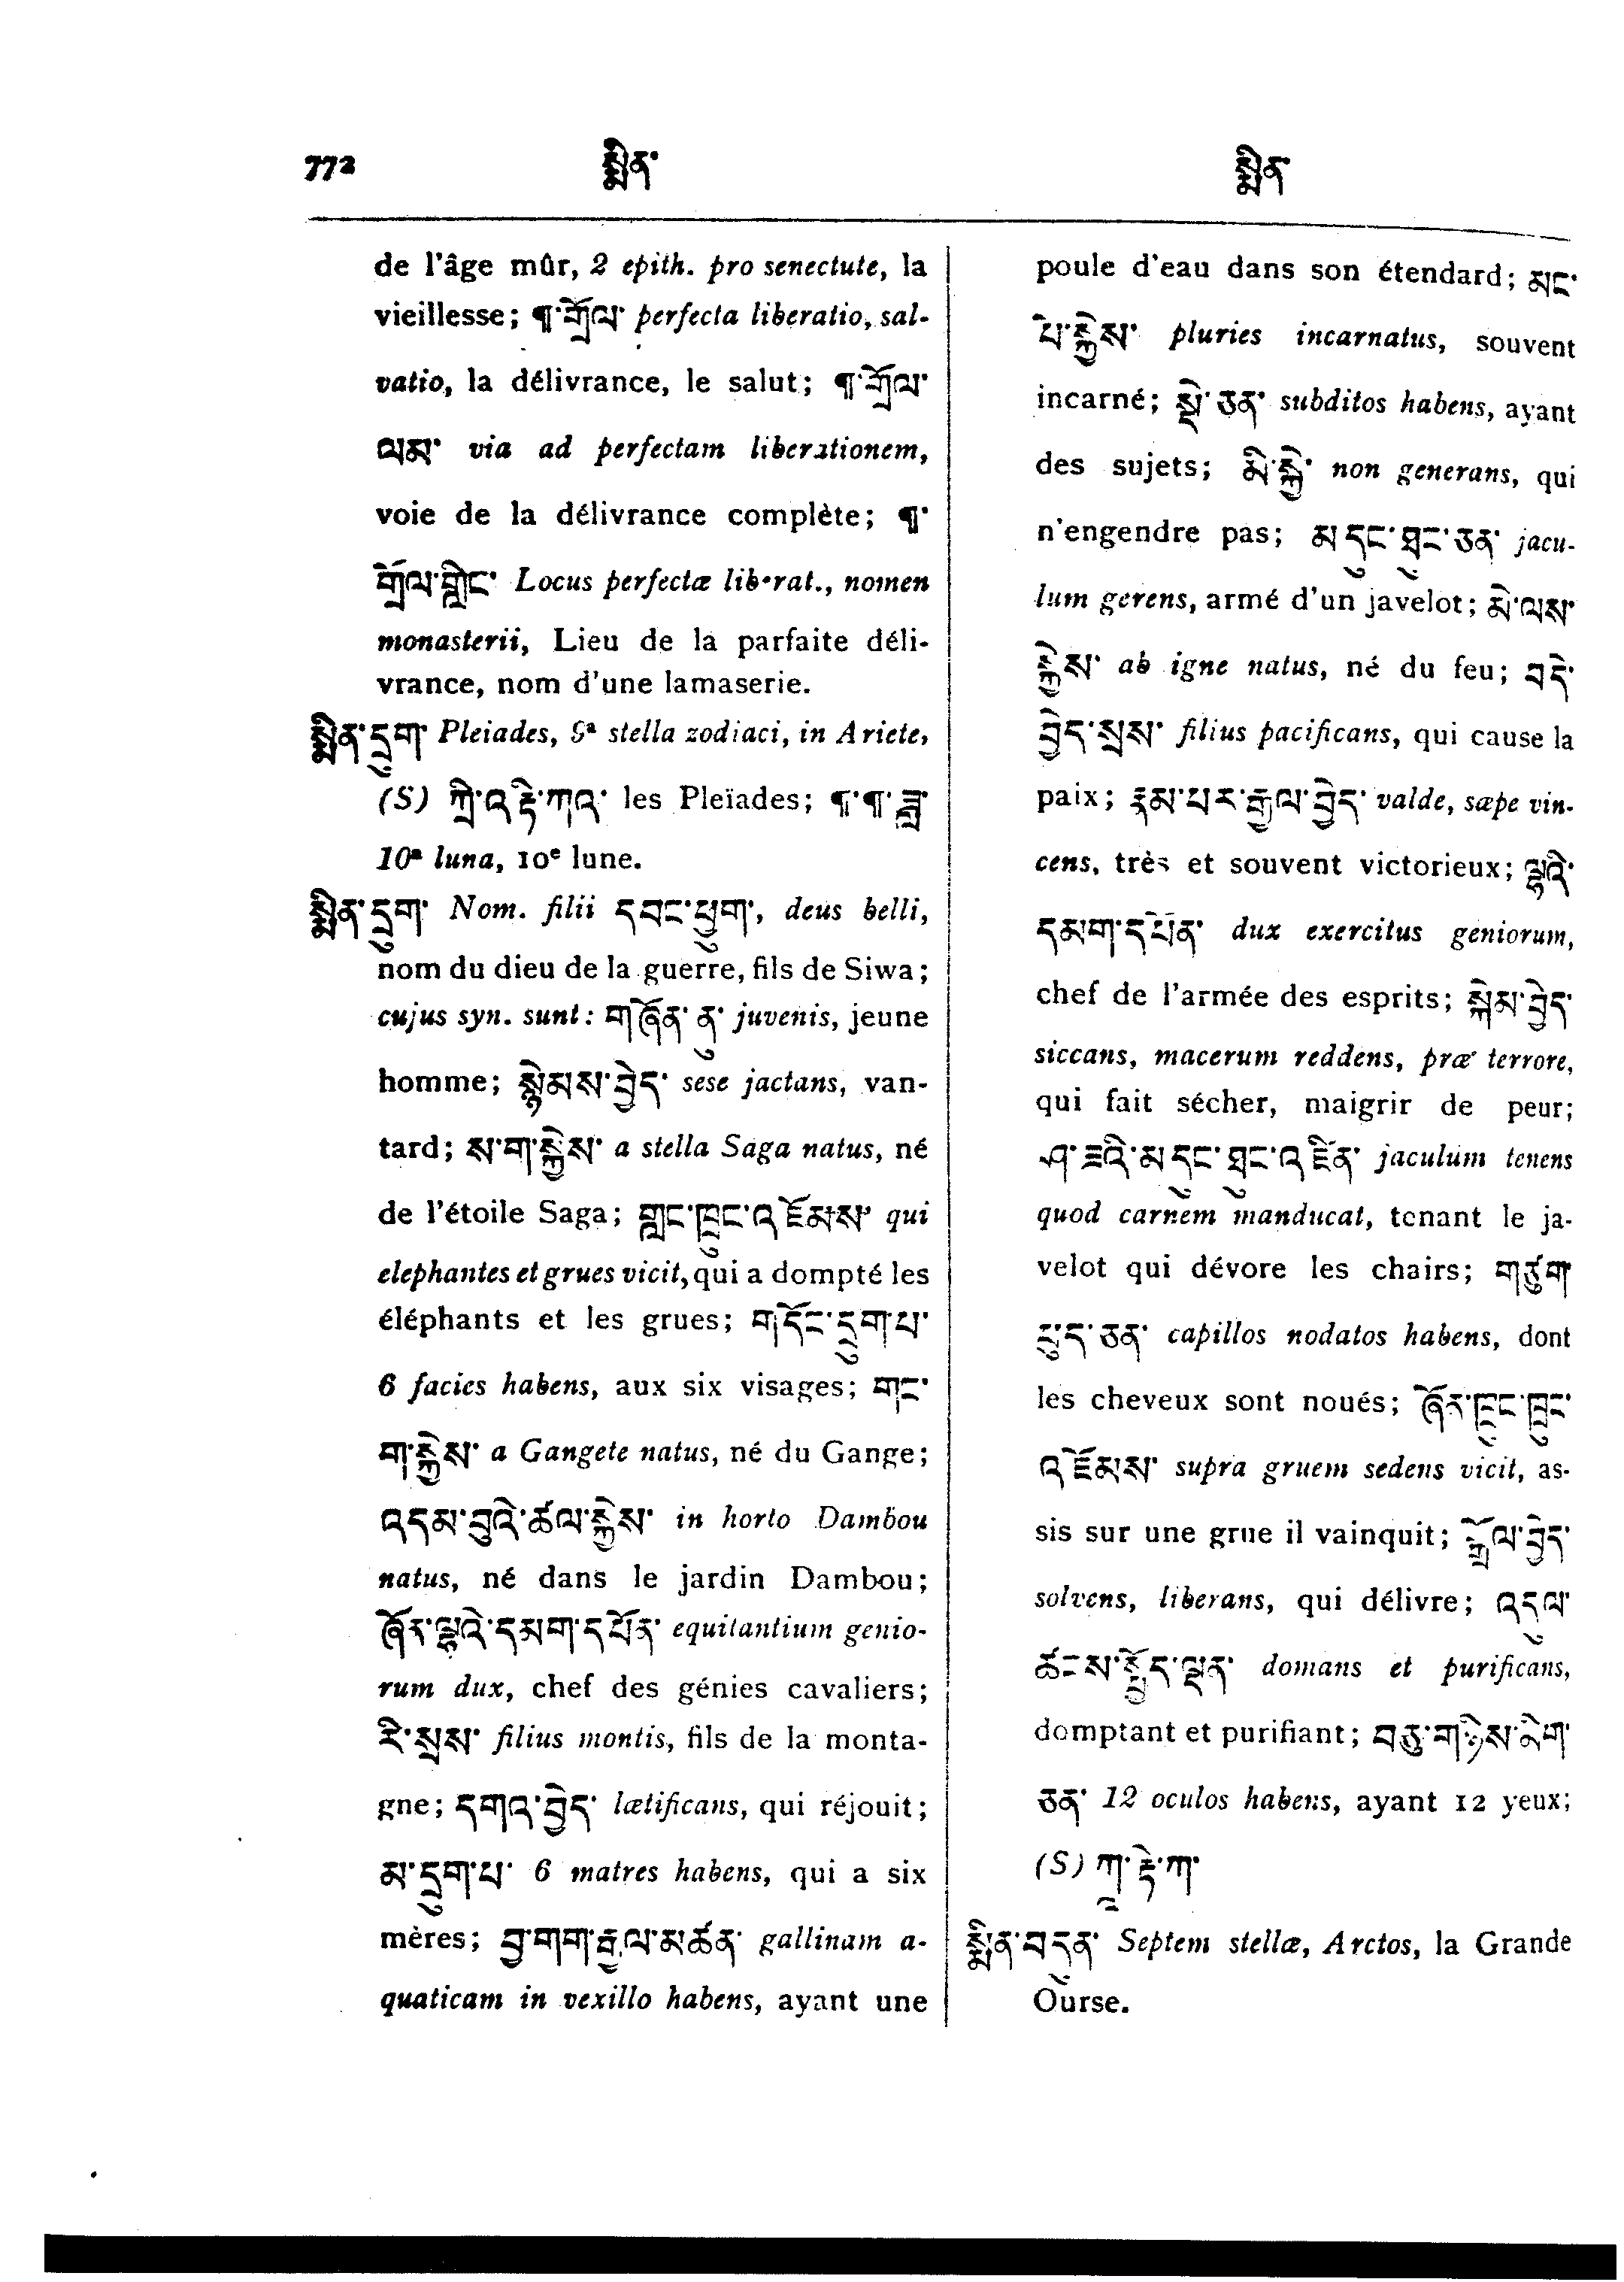 772 སྨིན་ སྨིན་
de l'âge mûr, 2 epith. pro senectute, la
vieillesse; ¶་གྲོལ་ perfecta liberatio, sal-
vatio, la délivrance, le salut; ¶་གྲོལ་
ལམ་ via ad perfectam liberationem,
voie de la délivrance complète; ¶་
གྲོལ་གླིང་ Locus perfectæ liberat., nomen
monasterii, Lieu de la parfaite déli-
vrance, nom d'une lamaserie.
སྨིན་དྲུག་ Pleiades, 6ª stella zodiaci, in Ariete,
(S) ཀྲི་འ་རྟེ་ཀའ་ les Pleïades; ¶་¶་ཟླ་
10ª luna, 10e lune.
སྨིན་དྲུག་ Nom. filii དབང་ཕྱུག་, deus belli,
nom du dieu de la guerre, fils de Siwa;
cujus syn. sunt: གཞོན་ནུ་ juvenis, jeune
homme; སྙེམས་བྱེད་ sese jactans, van-
tard; ས་ག་སྐྱེས་ a stella Saga natus, né
de l'étoile Saga; གླང་ཁྲུང་འཇོམས་ qui
elephantes et grues vicit, qui a dompté les
éléphants et les grues; གདོང་དྲུག་པ་
6 facies habens, aux six visages; གང་
གཱ་སྐྱེས་ a Gangete natus, né du Gange;
འདམ་བུའི་ཚལ་སྐྱེས་ in horto Dambou
natus, né dans le jardin Dambou;
ཞོན་ལྷའི་དམག་དཔོན་ equitantium genio-
rum dux, chef des génies cavaliers;
རི་སྲས་ filius montis, fils de la monta-
gne; དགའ་བྱེད་ lætificans, qui réjouit;
མ་དྲུག་པ་ 6 matres habens, qui a six
mères; བྱ་གག་རྒྱལ་མཚན་ gallinam a-
quaticam in vexillo habens, ayant une
poule d'eau dans son étendard; མང་
པོ་སྐྱེས་ pluries incarnatus, souvent
incarné; སྡེ་ཅན་ subditos habens, ayant
des sujets; མི་སྐྱེ་ non generans, qui
n'engendre pas; མདུང་ཐུང་ཅན་ jacu-
lum gerens, armé d'un javelot; མེ་ལས་
སྐྱེས་ ab igne natus, né du feu; བདེ་
བྱེད་སྲས་ filius pacificans, qui cause la
paix; རྣམ་པར་རྒྱལ་བྱེད་ valde, sæpe vin-
cens, très et souvent victorieux; ལྷའི་
དམག་དཔོན་ dux exercitus geniorum,
chef de l'armée des esprits; སྐེམ་བྱེད་
siccans, macerum reddens, præ terrore,
qui fait sécher, maigrir de peur;
ཤ་ཟའི་མདུང་ཐུང་འཛིན་ jaculum tenens
quod carnem manducat, tenant le ja-
velot qui dévore les chairs; གཙུག་
ཕུད་ཅན་ capillos nodatos habens, dont
les cheveux sont noués; ཞོན་ཁྲུང་ཁྲུང་
འཇོམས་ supra gruem sedens vicit, as-
sis sur une grue il vainquit; སྒྲོལ་བྱེད་
solvens, liberans, qui délivre; འདུལ་
ཚངས་སྤྱོད་ལྡན་ domans et purificans,
domptant et purifiant; བཅུ་གཉིས་མིག་
ཅན་ 12 oculos habens, ayant 12 yeux;
(S) ཀཱ་རྟེ་ཀ་
སྨིན་བདུན་ Septem stellæ, Arctos, la Grande
Ourse.